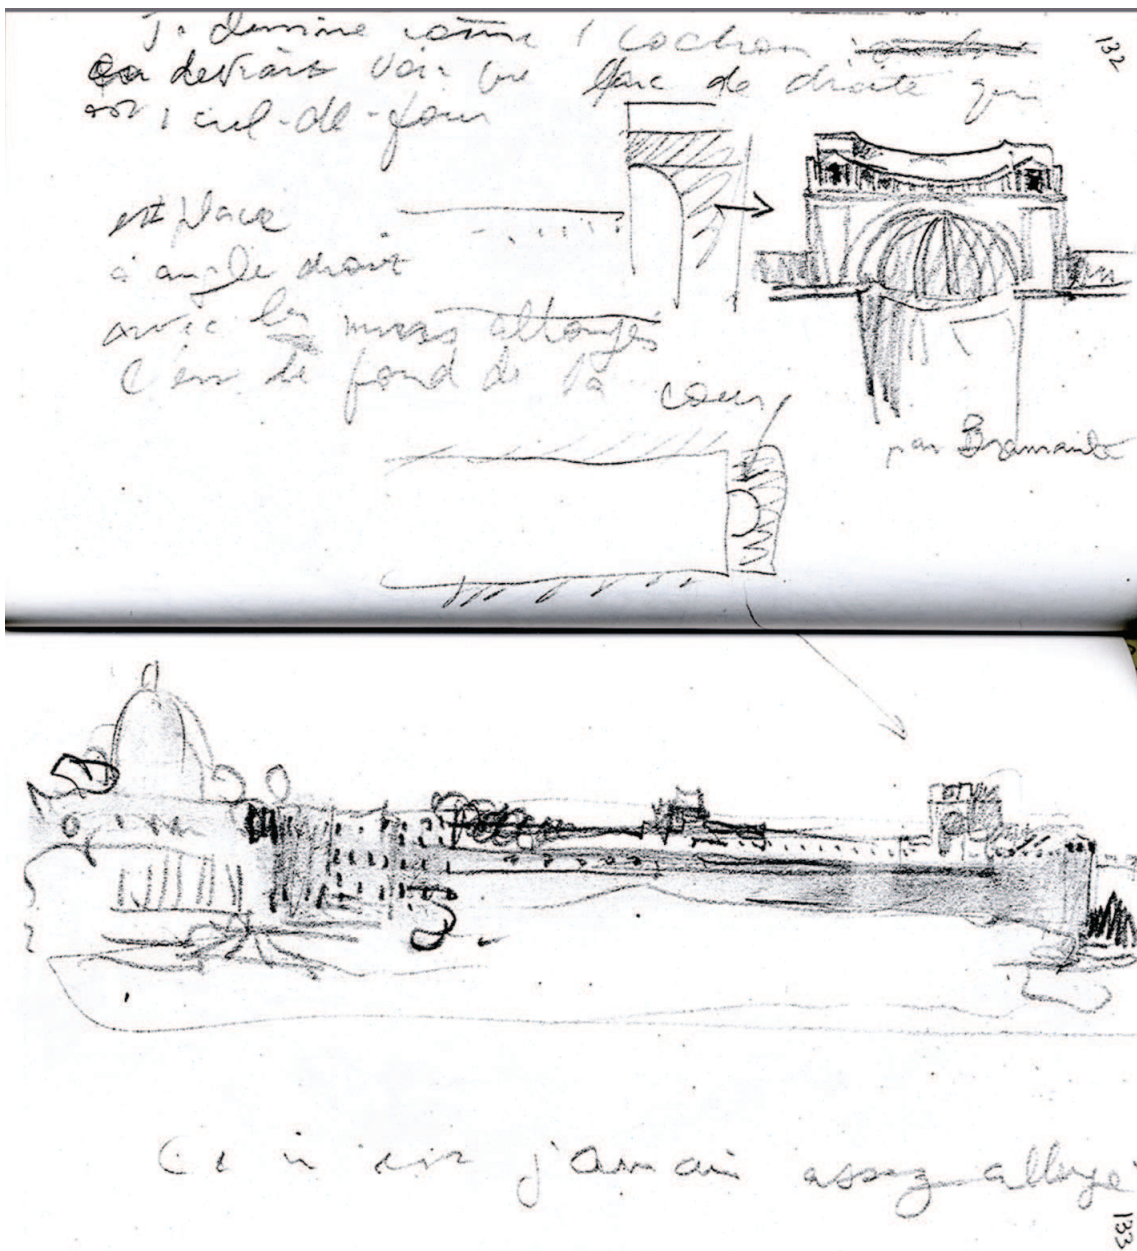 132
Je dessine comme 1 cochon
on devrait voir que l'arc de droite qui
est 1 cul-de-four
est placé
à angle droit
avec les murs allongés
C'est le fond de la cour
par Bramante
Ce n'est jamais assez allongé
133